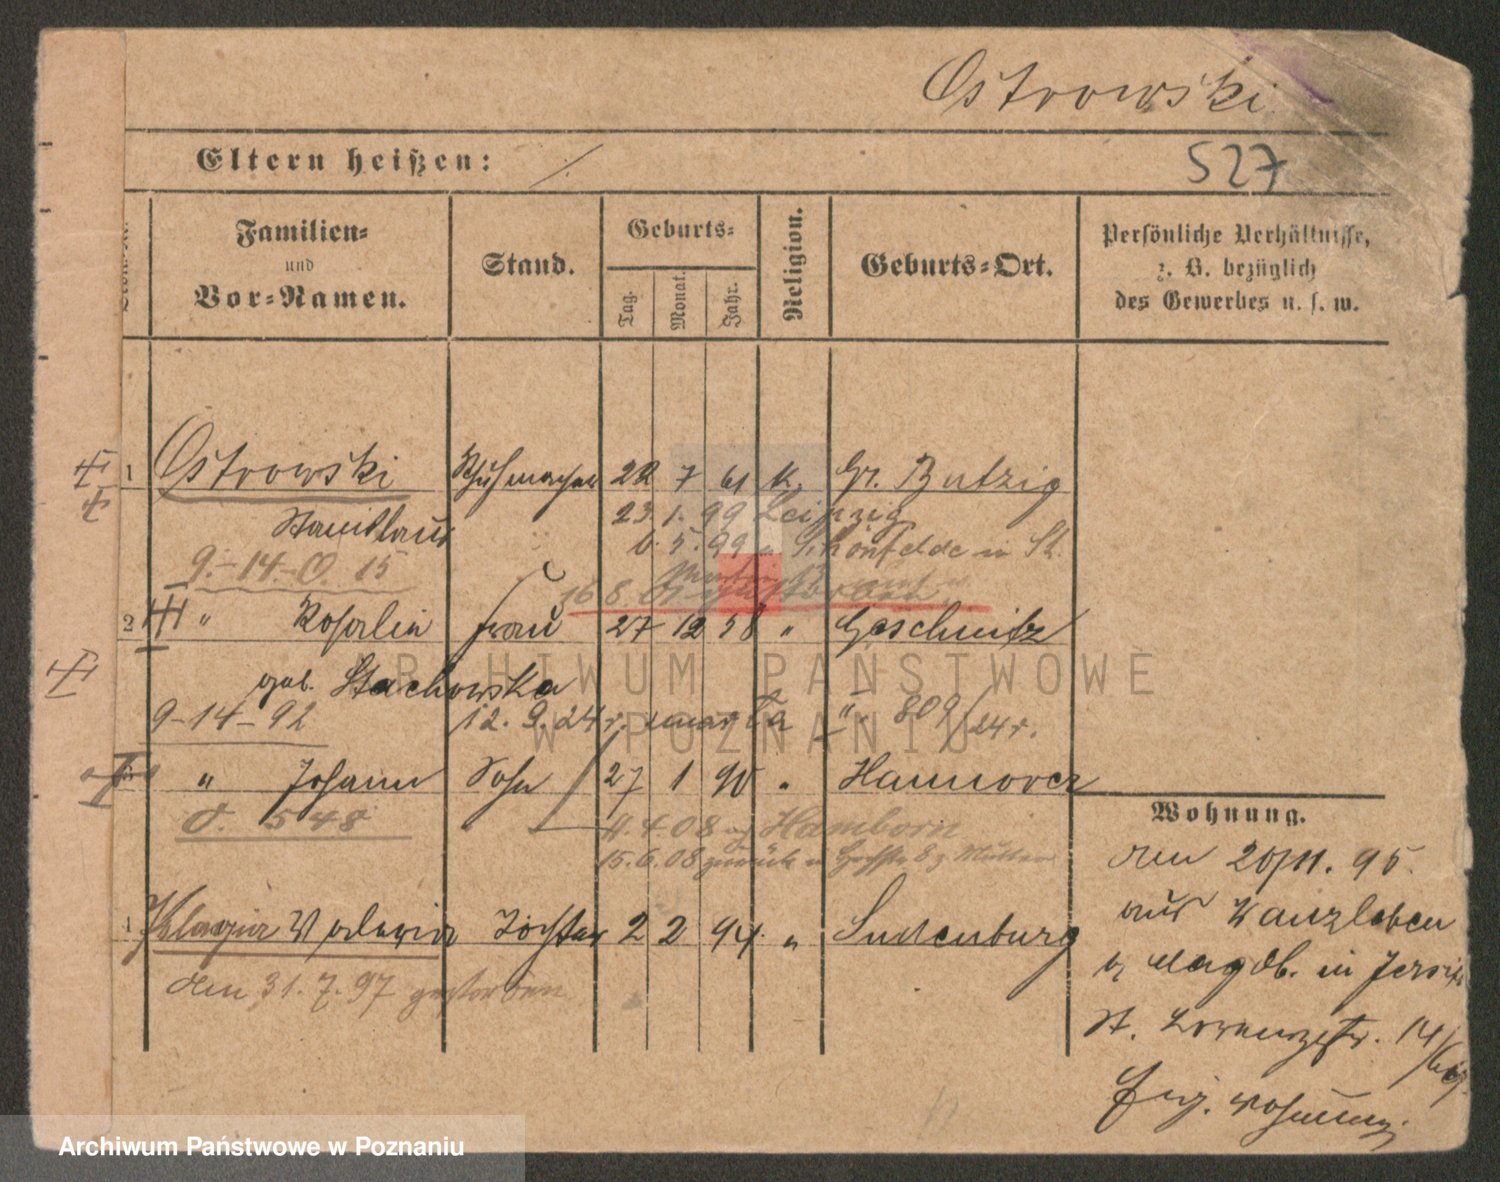 Ostrowski
Eltern heißen: ./.
527
Familien-
und
Vor-Namen.
Stand.
Geburts-
Tag.
Monat.
Jahr.
Religion.
Geburts-Ort.
Persönliche Verhältnisse,
z. B. bezüglich
des Gewerbes u. s. w.
1 Ostrowski Schuhmacher 22 7 61 k. Gr. Butzig
Stanislaus 23. 1. 99 Leipzig
6. 5. 99 Schönfelde in St.
9.-14.-0. 15
16 8. 01
2 " Rosalie Frau 27 12 58 " Geschnitz
geb. Stachowska
9-14-92 12. 9. 24 r. 809/24 r.
" Johann Sohn 27 1 90 " Hannover
d. 548 11.4.08 Hamborn
15.6.08 zurück z. Mutter
Wohnung.
den 20/11. 95.
aus Wanzleben
b/ Magdb. in Jersitz
St. Lorenzstr. 14/
Eig. Wohnung.
Pelagia Valeria Tochter 2 2 94. " Sudenburg
den 31. 7. 97 gestorben
ARCHIWUM PAŃSTWOWE
W POZNANIU
Archiwum Państwowe w Poznaniu